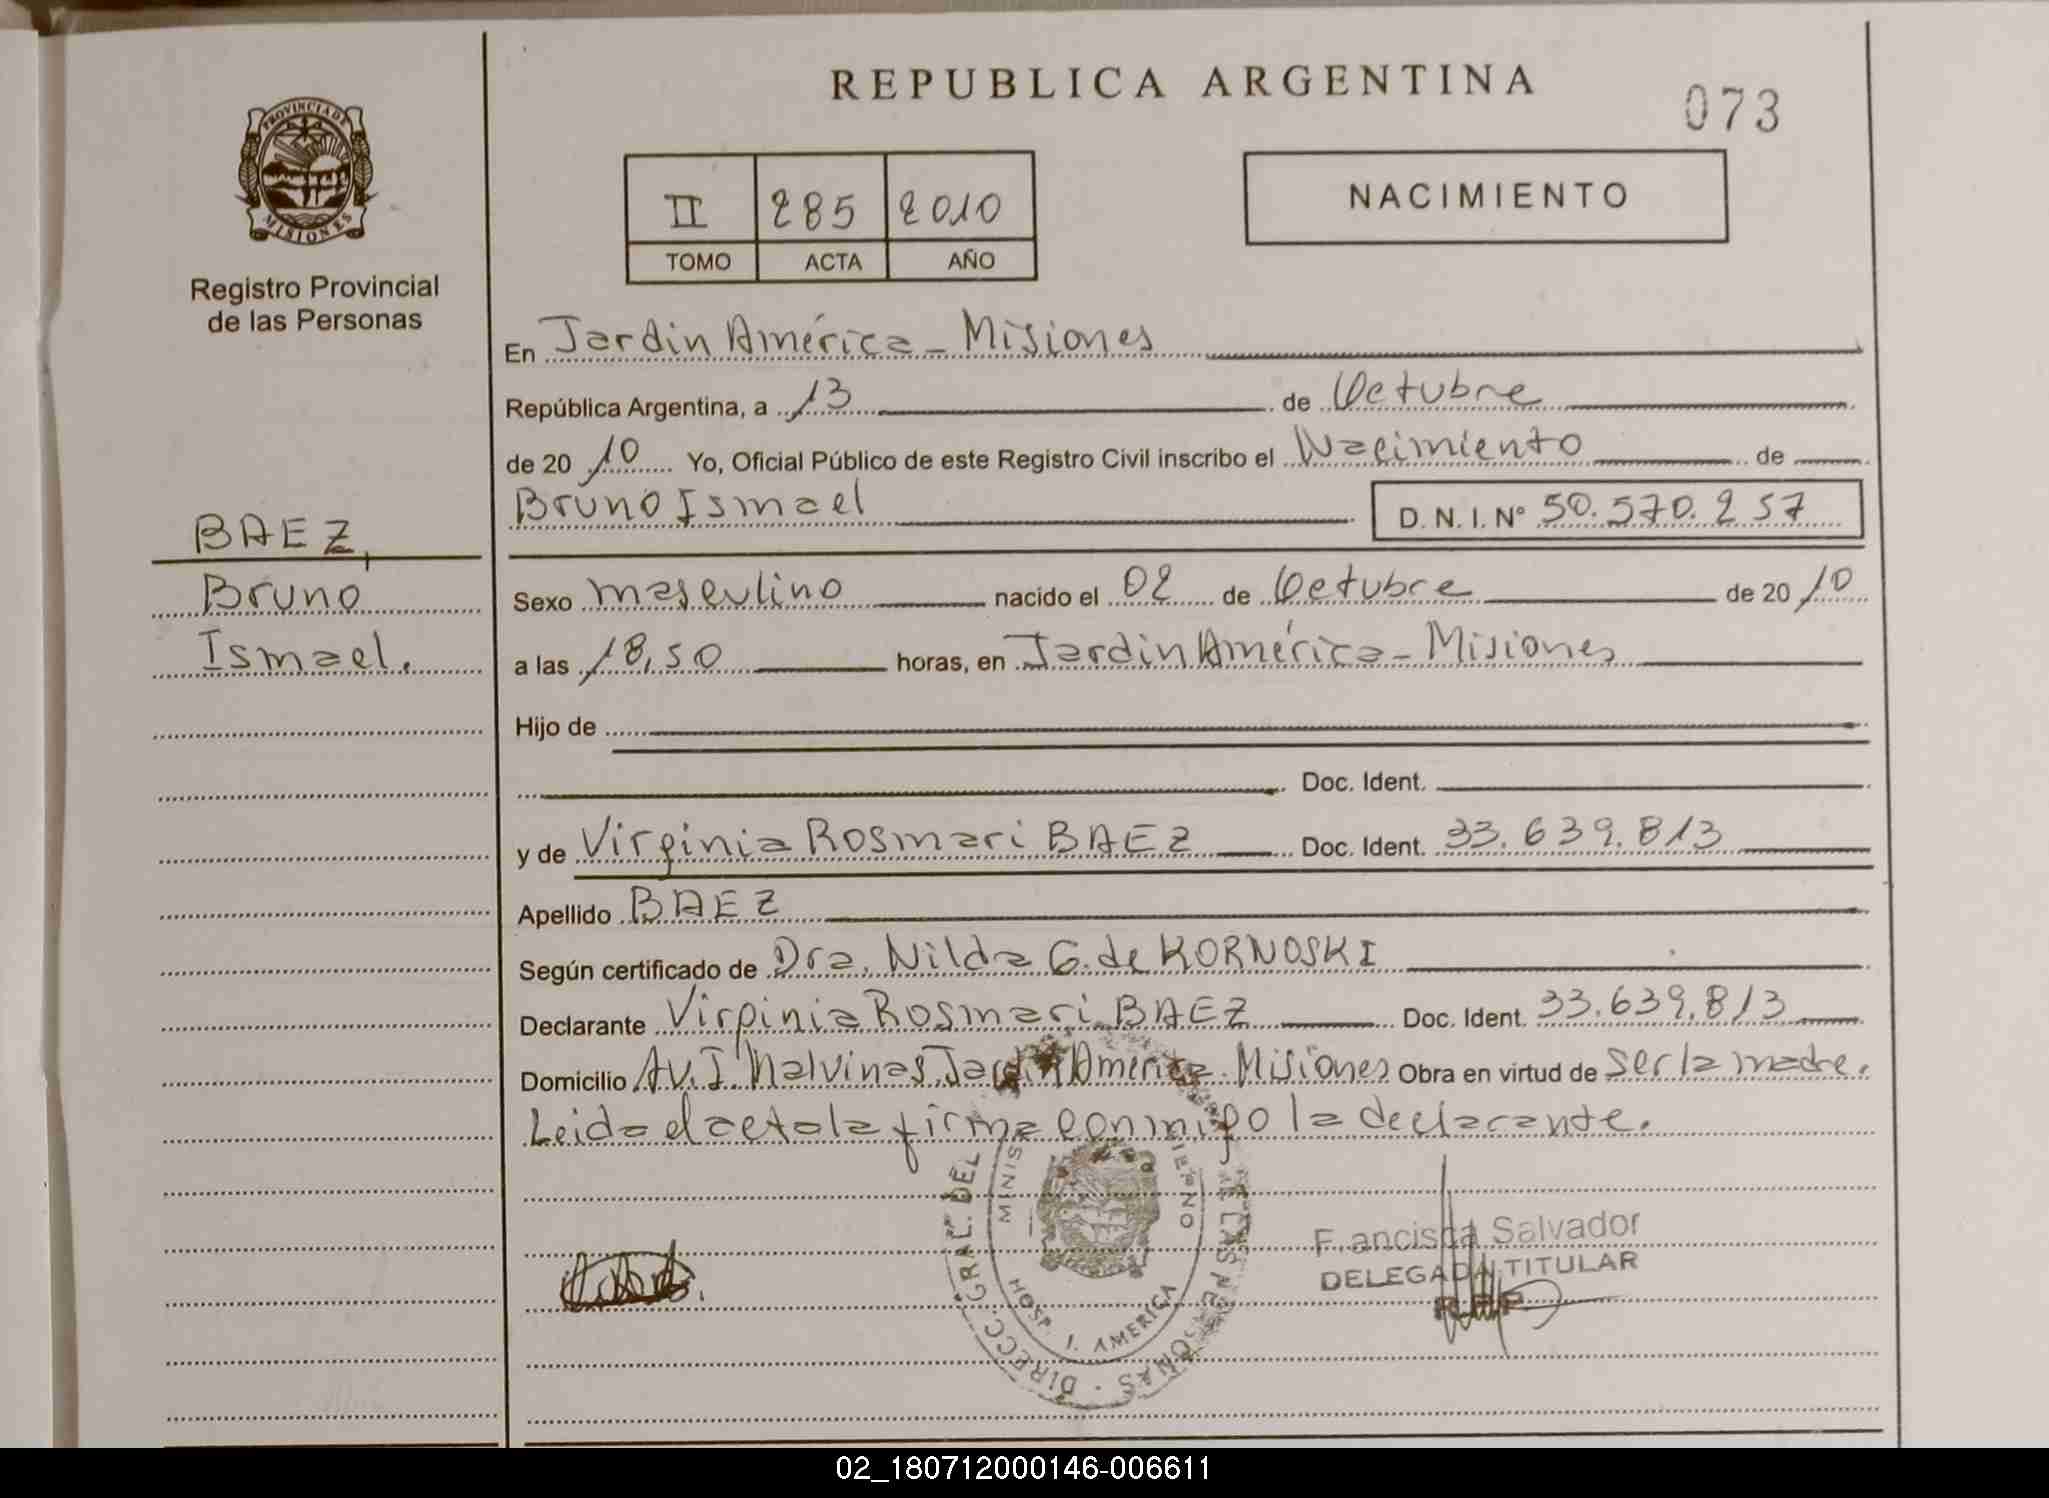 REPUBLICA ARGENTINA
073
PROVINCIA DE
MISIONES
Registro Provincial
de las Personas
II 285 2010
TOMO ACTA AÑO
NACIMIENTO
En Jardin América - Misiones
República Argentina, a 13 de Octubre
de 20 10 Yo, Oficial Público de este Registro Civil inscribo el Nacimiento de
Bruno Ismael D. N. I. Nº 50.570.257
BAEZ,
Bruno
Ismael.
Sexo masculino nacido el 02 de Octubre de 20 10
a las 18,50 horas, en Jardin América - Misiones
Hijo de
Doc. Ident.
y de Virginia Rosmari BAEZ Doc. Ident. 33.639.813
Apellido BAEZ
Según certificado de Dra. Nilda G. de KORNOSKI
Declarante Virginia Rosmari BAEZ Doc. Ident. 33.639.813
Domicilio Av. I. Malvinas Jardin América - Misiones Obra en virtud de ser la madre.
Leida el acta la firma conmigo la declarante.
DIRECC. GRAL. DEL LAS PERSONAS
MINIS
HOSP. J. AMERICA
Francisca Salvador
DELEGADA TITULAR
R.P.P
02_180712000146-006611